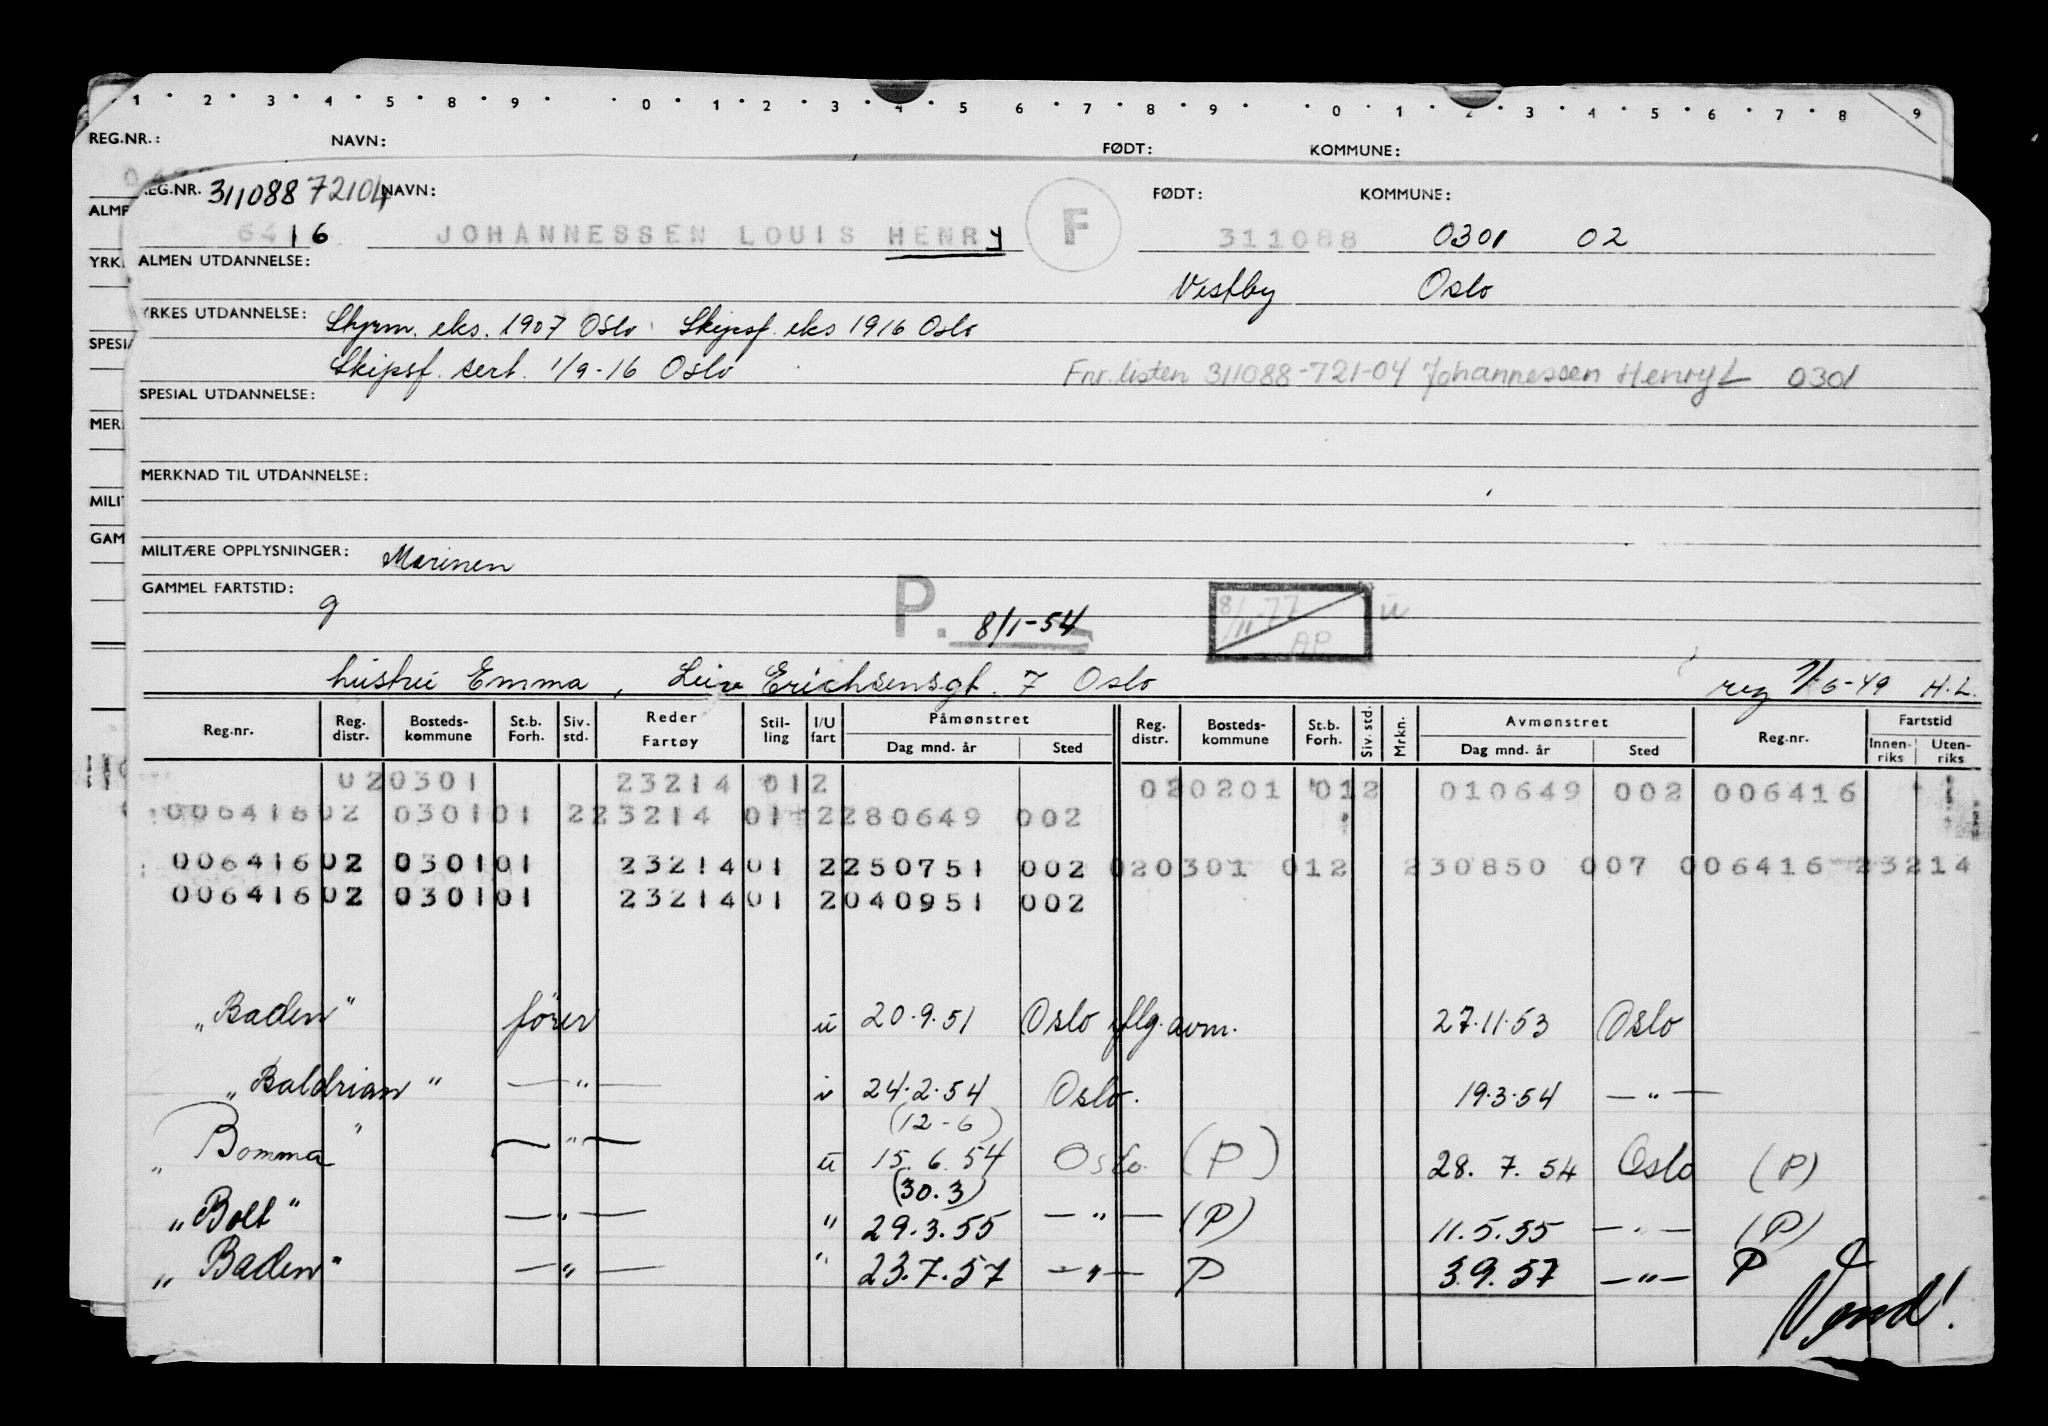 1 · 2 · 3 · 4 · 5 · 8 · 9 · · 0 · 1 · 2 · 3 · 4 · 5 · 6 · 7 · 8 · 9 · · 0 · 1 · 2 · 3 · 4 · 5 · 6 · 7 · 8 · 9
REG.NR.: NAVN: FØDT: KOMMUNE:
REG.NR. 311088 72104 NAVN: FØDT: KOMMUNE:
6416 JOHANNESSEN LOUIS HENRy F 311088 0301 02
ALMEN UTDANNELSE: Vestby Oslo
YRKES UTDANNELSE: Styrm. eks. 1907 Oslo Skipsf. eks 1916 Oslo
Skipsf. sert. 1/9-16 Oslo Fnr. listen 311088-721-04 Johannessen Henry L 0301
SPESIAL UTDANNELSE:
MERKNAD TIL UTDANNELSE:
MILITÆRE OPPLYSNINGER: Marinen
GAMMEL FARTSTID: g P. 8/1-54 8/11-77 AP u
hustru Emma, Leiv Erichsensgt. 7 Oslo reg 7/6-49 H.L.
Reg.nr. Reg. distr. Bosteds-kommune St.b. Forh. Siv. std. Reder Fartøy Stil-ling I/U fart Påmønstret Dag mnd. år Sted Reg. distr. Bosteds-kommune St.b. Forh. Siv. std. Mrkn. Avmønstret Dag mnd. år Sted Reg.nr. Fartstid Innen-riks Uten-riks
020301 23214 012 020201 012 010649 002 006416
006416 02 030101 2 23214 01 2 280649 002
006416 02 030101 23214 01 2 250751 002 020301 012 230850 007 006416 23214
006416 02 030101 23214 01 2 040951 002
"Baden" fører u 20.9.51 Oslo flg. avm. 27.11.53 Oslo
"Baldrian" — " — i 24.2.54 Oslo. 19.3.54 — " —
(12-6)
"Bomma" — " — u 15.6.54 Oslo (P) 28.7.54 Oslo (P)
(30.3)
"Bolt" — " — " 29.3.55 — " — (P) 11.5.55 — " — (P)
"Baden" — " — " 23.7.57 — " — P 3.9.57 — " — P
Vend!